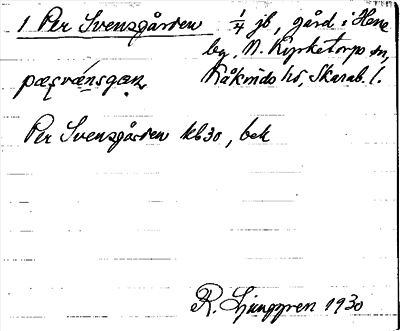 1 Per Svensgården 1/4 jb, gård i Hene
by, N. Kyrketorp sn,
pæʂvænsgæɳ Kåkinds hd, Skarab. l.
Per Svensgården kb 30, bek
R. Ljunggren 1930